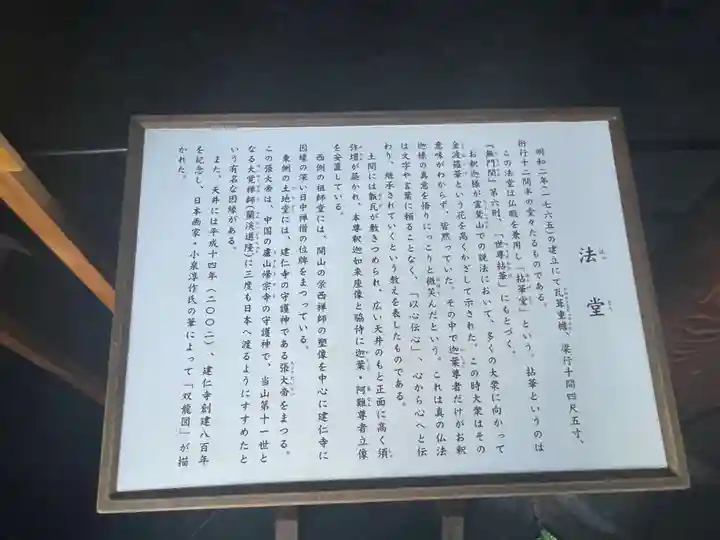 法堂
はっ とう
明和二年(一七六五)の建立にて瓦葺重檐、梁行十間四尺五寸、
桁行十二間半の堂々たるものである。
この法堂は仏殿を兼用し「拈華堂」という。拈華というのは
『無門関』第六則、「世尊拈華」にもとづく。
お釈迦様が霊鷲山での説法において、多くの大衆に向かって
金波羅華という花を高くかざして示された。この時大衆はその
意味がわからず、皆黙っていた。その中で迦葉尊者だけがお釈
迦様の真意を悟りにっこりと微笑んだという。これは真の仏法
は文字や言葉に頼ることなく、「以心伝心」、心から心へと伝
わり、継承されていくという教えを表したものである。
土間には甎瓦が敷きつめられ、広い天井のもと正面に高く須
弥壇が築かれ、本尊釈迦如来座像と脇侍に迦葉・阿難尊者立像
を安置している。
西側の祖師堂には、開山の栄西禅師の塑像を中心に建仁寺に
因縁の深い日中禅僧の位牌をまつっている。
東側の土地堂には、建仁寺の守護神である張大帝をまつる。
この張大帝は、中国の廬山帰宗寺の守護神で、当山第十一世と
なる大覚禅師(蘭渓道隆)に三度も日本へ渡るようにすすめたと
いう有名な因縁がある。
また、天井には平成十四年(二〇〇二)、建仁寺創建八百年
を記念し、日本画家・小泉淳作氏の筆によって「双龍図」が描
かれた。